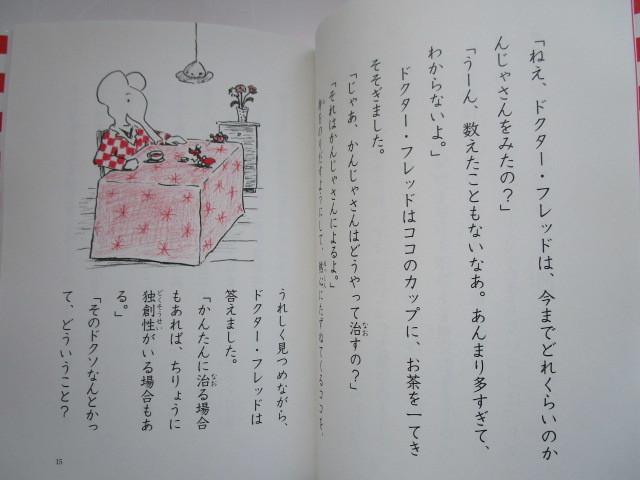 「ねえ、ドクター・フレッドは、今までどれくらいのか
んじゃさんをみたの？」
「うーん、数えたこともないなあ。あんまり多すぎて、
わからないよ。」
ドクター・フレッドはココのカップに、お茶を一てき
そそぎました。
「じゃあ、かんじゃさんはどうやって治すの？」
なお
「それはかんじゃさんによるよ。」
身をのりだすようにして、熱心にたずねてくるココを、
うれしく見つめながら、
ドクター・フレッドは
答えました。
「かんたんに治る場合
なお
もあれば、ちりょうに
独創性がいる場合もあ
どくそうせい
る。」
「そのドクソなんとかっ
て、どういうこと？
15